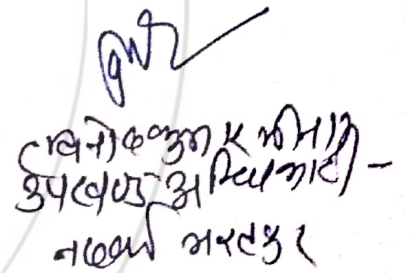 विनोद कुमार मीना
उपखण्ड अधिकारी -
नदबई भरतपुर